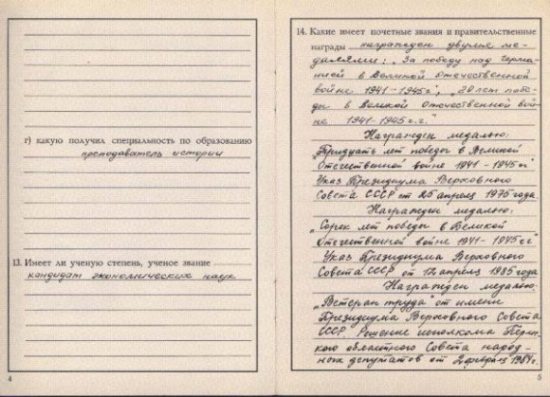 г) какую получил специальность по образованию
преподаватель истории
13. Имеет ли ученую степень, ученое звание
кандидат экономических наук
4
14. Какие имеет почетные звания и правительственные
награды награжден двумя ме-
далями: „За победу над Герма-
нией в Великой Отечественной
войне 1941-1945г", „20 лет побе-
ды в Великой Отечественной вой-
не 1941-1945 г.г."
Награжден медалью:
„Тридцать лет победы в Великой
Отечественной войне 1941-1945 гг"
Указ Президиума Верховного
Совета СССР от 25 апреля 1975 года.
Награжден медалью:
„Сорок лет победы в Великой
Отечественной войне 1941-1945 гг"
Указ Президиума Верховного
Совета СССР от 12 апреля 1985 года
Награжден медалью
„Ветеран труда" от имени
Президиума Верховного Совета
СССР. Решение исполкома Перм-
кого областного Совета народ-
ных депутатов от 2 февраля 1984г.
5